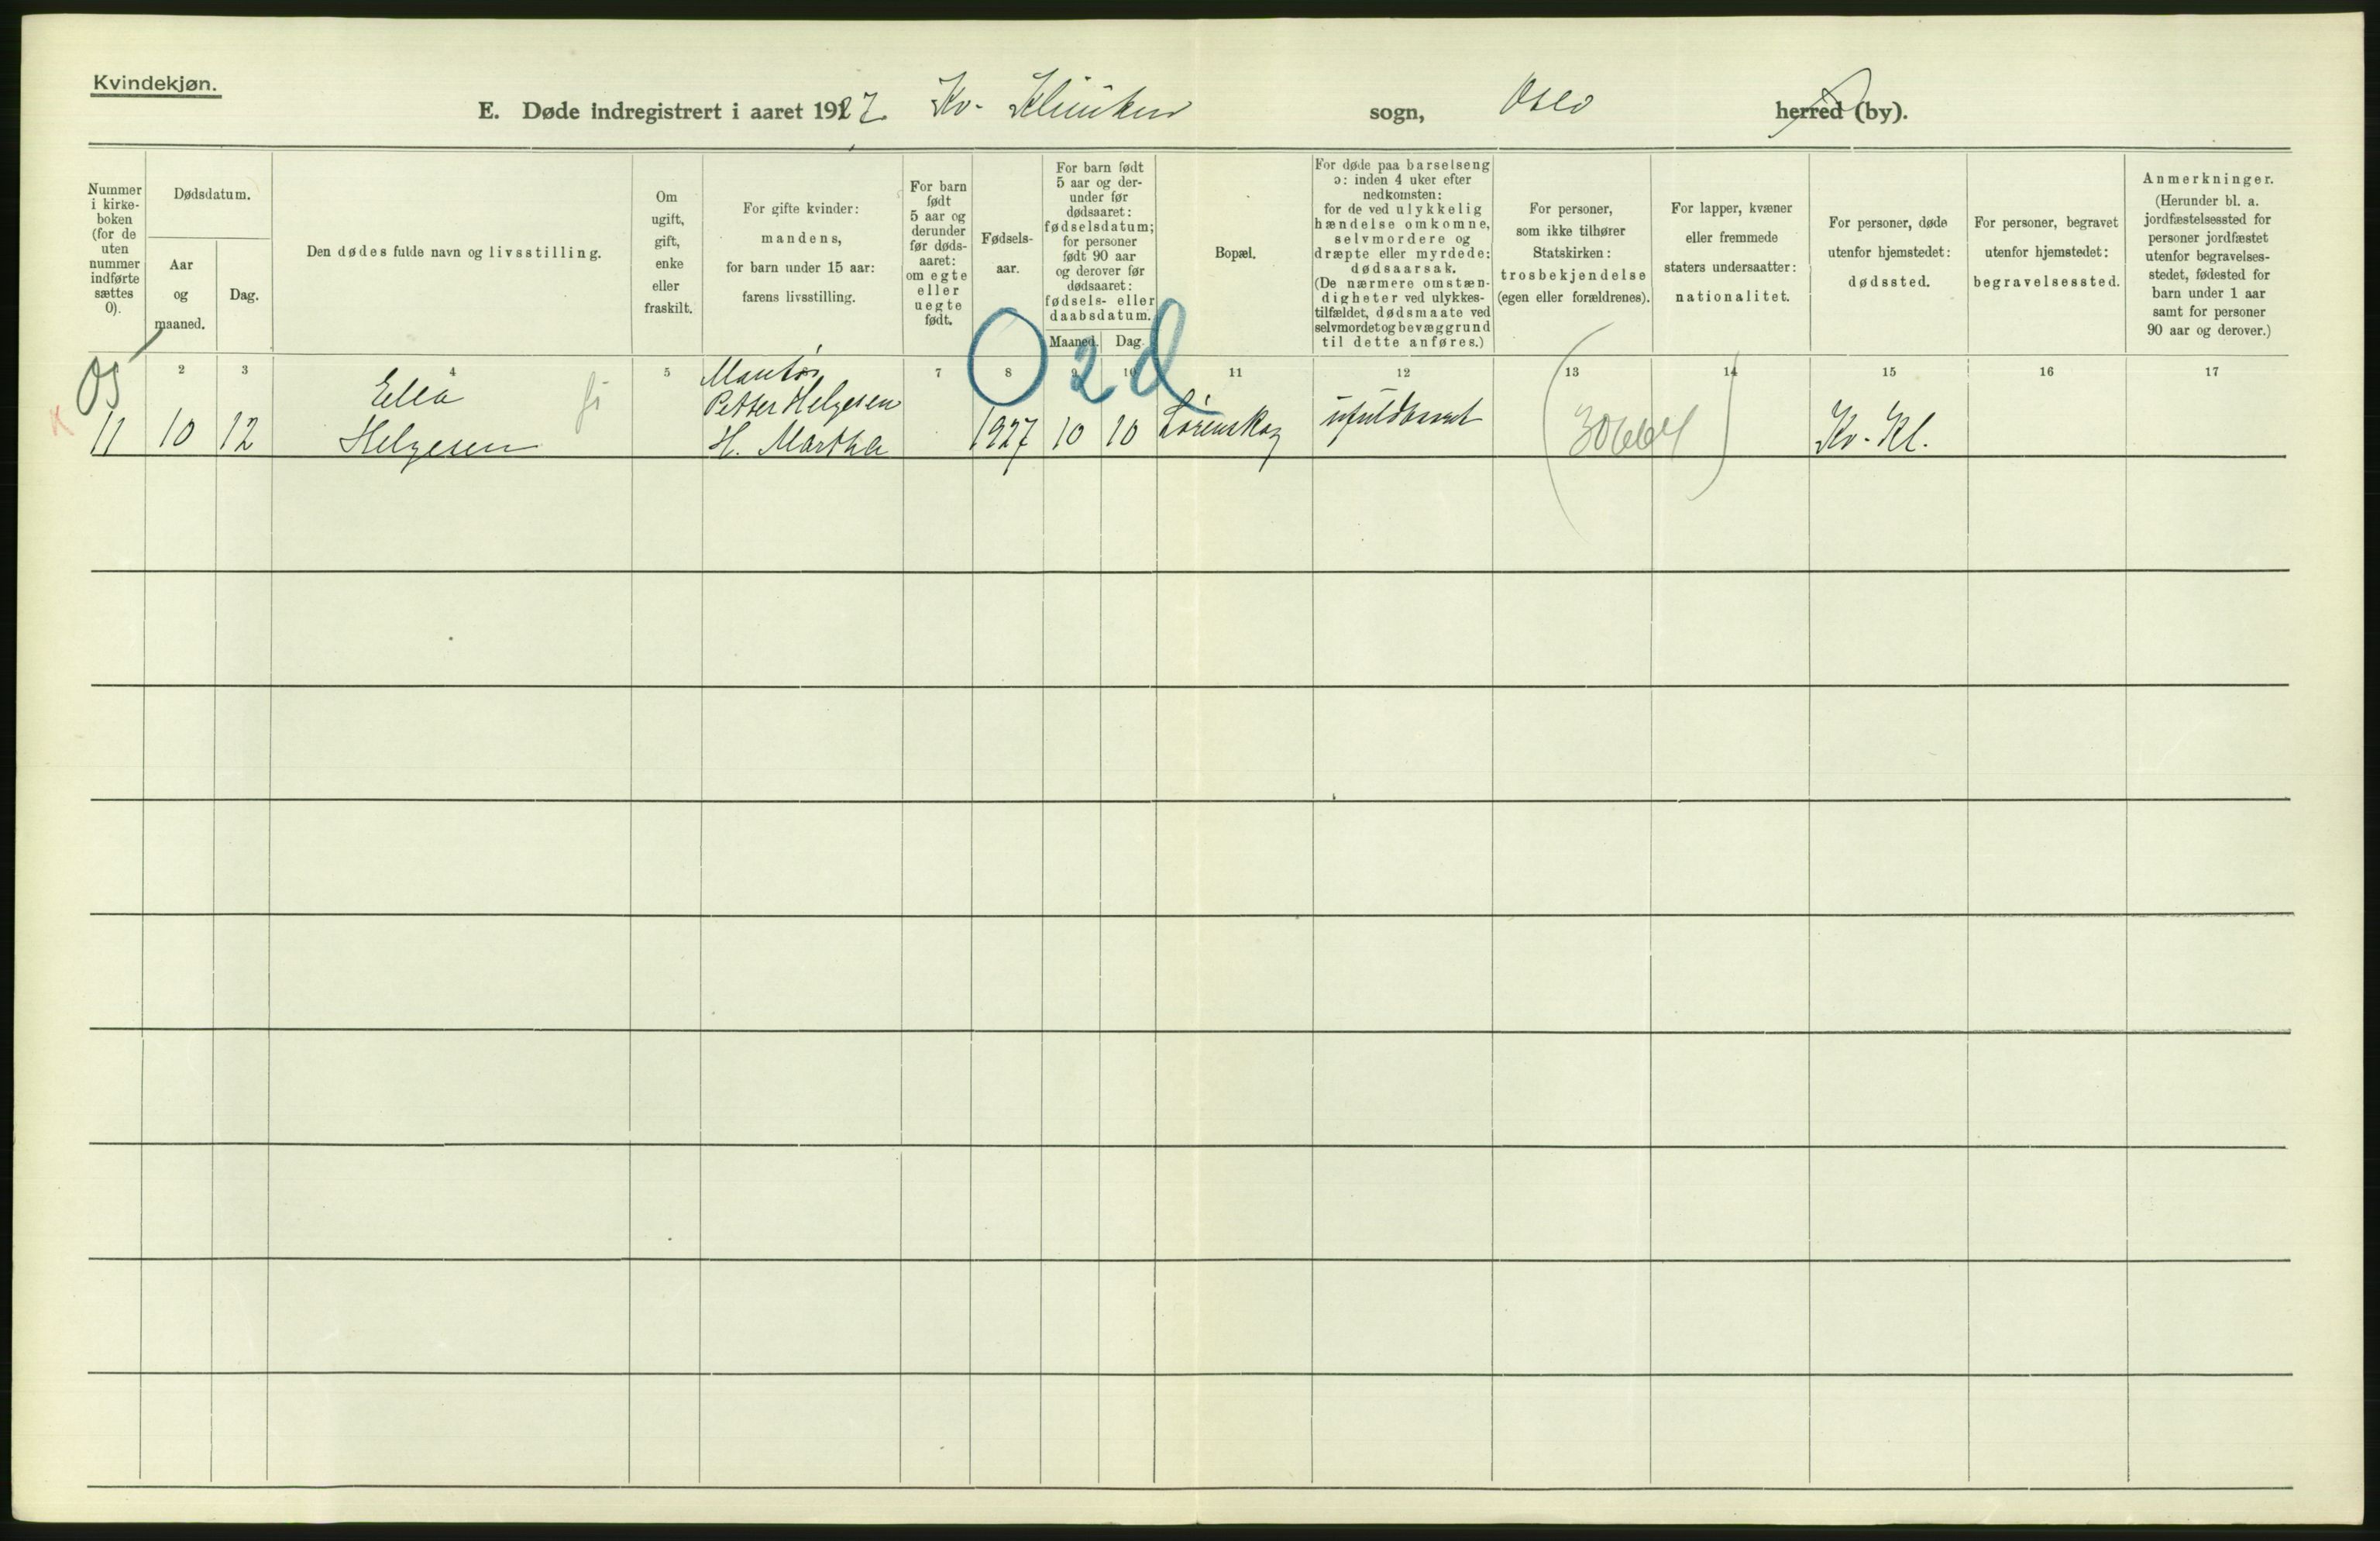 Kvindekjøn.
E. Døde indregistrert i aaret 1927 Kv. Kliniken sogn, Oslo herred (by).
Nummer
i kirke-
boken
(for de
uten
nummer
indførte
sættes
0).
Dødsdatum.
Aar
og
maaned.
Dag.
Den dødes fulde navn og livsstilling.
Om
ugift,
gift,
enke
eller
fraskilt.
For gifte kvinder:
mandens,
for barn under 15 aar:
farens livsstilling.
For barn
født
5 aar og
derunder
før døds-
aaret:
om egte
eller
uegte
født.
Fødsels-
aar.
For barn født
5 aar og der-
under før
dødsaaret:
fødselsdatum;
for personer
født 90 aar
og derover før
dødsaaret:
fødsels- eller
daabsdatum.
Maaned.
Dag.
Bopæl.
For døde paa barselseng
ɔ: inden 4 uker efter
nedkomsten:
for de ved ulykkelig
hændelse omkomne,
selvmordere og
dræpte eller myrdede:
dødsaarsak.
(De nærmere omstæn-
digheter ved ulykkes-
tilfældet, dødsmaate ved
selvmordet og bevæggrund
til dette anføres.)
For personer,
som ikke tilhører
Statskirken:
trosbekjendelse
(egen eller forældrenes).
For lapper, kvæner
eller fremmede
staters undersaatter:
nationalitet.
For personer, døde
utenfor hjemstedet:
dødssted.
For personer, begravet
utenfor hjemstedet:
begravelsessted.
Anmerkninger.
(Herunder bl. a.
jordfæstelsessted for
personer jordfæstet
utenfor begravelses-
stedet, fødested for
barn under 1 aar
samt for personer
90 aar og derover.)
2 3 4 5 7 8 9 10 11 12 13 14 15 16 17
02d
Os
11 10 12
Ella
Helgesen
gi
Montør
Petter Helgesen
H. Martha
1927 10 10 Lørenskog
ufuldbaaret
(30664)
Kv. Kl.